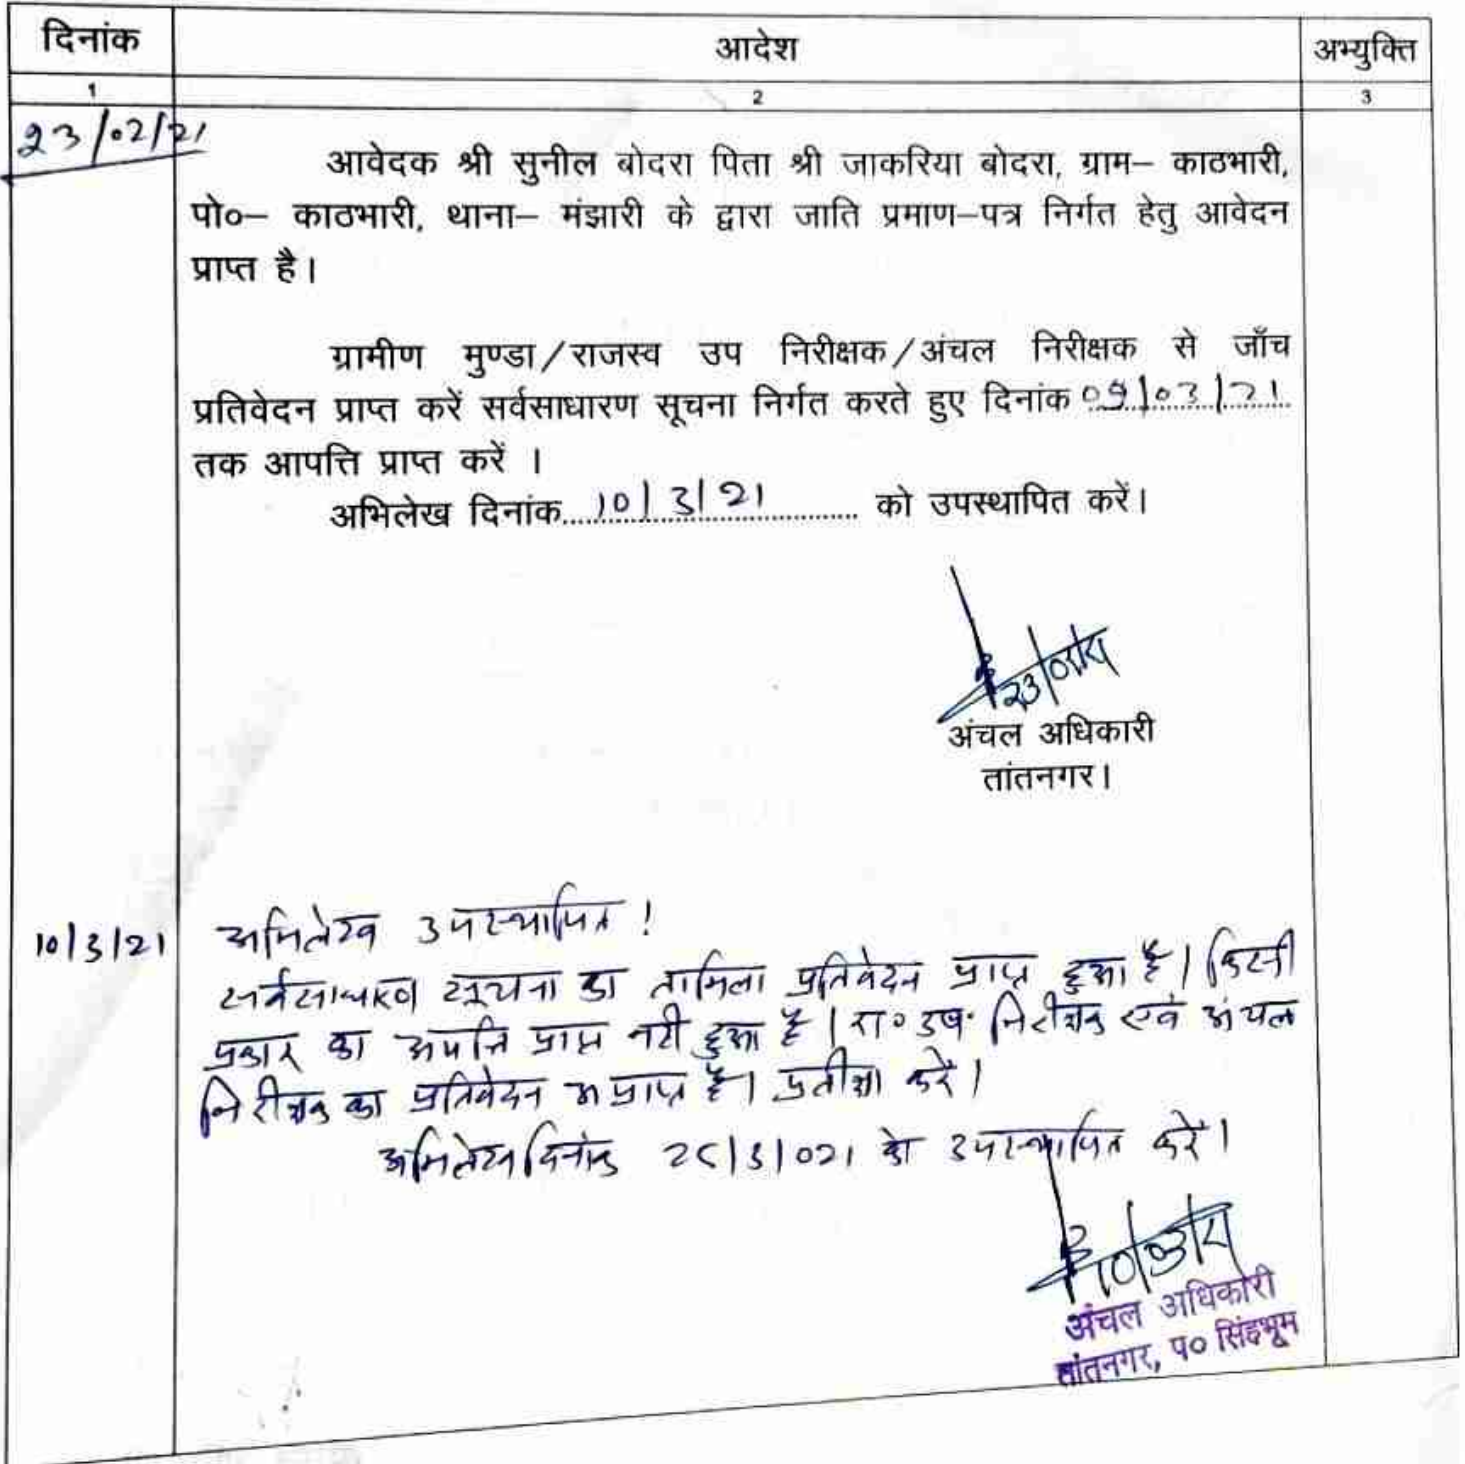 दिनांक आदेश अभ्युक्ति
1 2 3
23/02/21
आवेदक श्री सुनील बोदरा पिता श्री जाकरिया बोदरा, ग्राम– काठभारी,
पो०– काठभारी, थाना– मंझारी के द्वारा जाति प्रमाण–पत्र निर्गत हेतु आवेदन
प्राप्त है।
ग्रामीण मुण्डा/राजस्व उप निरीक्षक/अंचल निरीक्षक से जाँच
प्रतिवेदन प्राप्त करें सर्वसाधारण सूचना निर्गत करते हुए दिनांक 09/03/21
तक आपत्ति प्राप्त करें ।
अभिलेख दिनांक.....10/3/21..... को उपस्थापित करें।
अंचल अधिकारी
तांतनगर।
10/3/21 अभिलेख उपस्थापित !
सर्वसाधारण सूचना का तामिला प्रतिवेदन प्राप्त हुआ है। किसी
प्रकार का आपत्ति प्राप्त नही हुआ है। रा० उप० निरीक्षक एवं अंचल
निरीक्षक का प्रतिवेदन अप्राप्त है। प्रतीक्षा करें।
अभिलेख दिनांक को उपस्थापित करें।
10/03/21
अंचल अधिकारी
तांतनगर, प० सिंहभूम